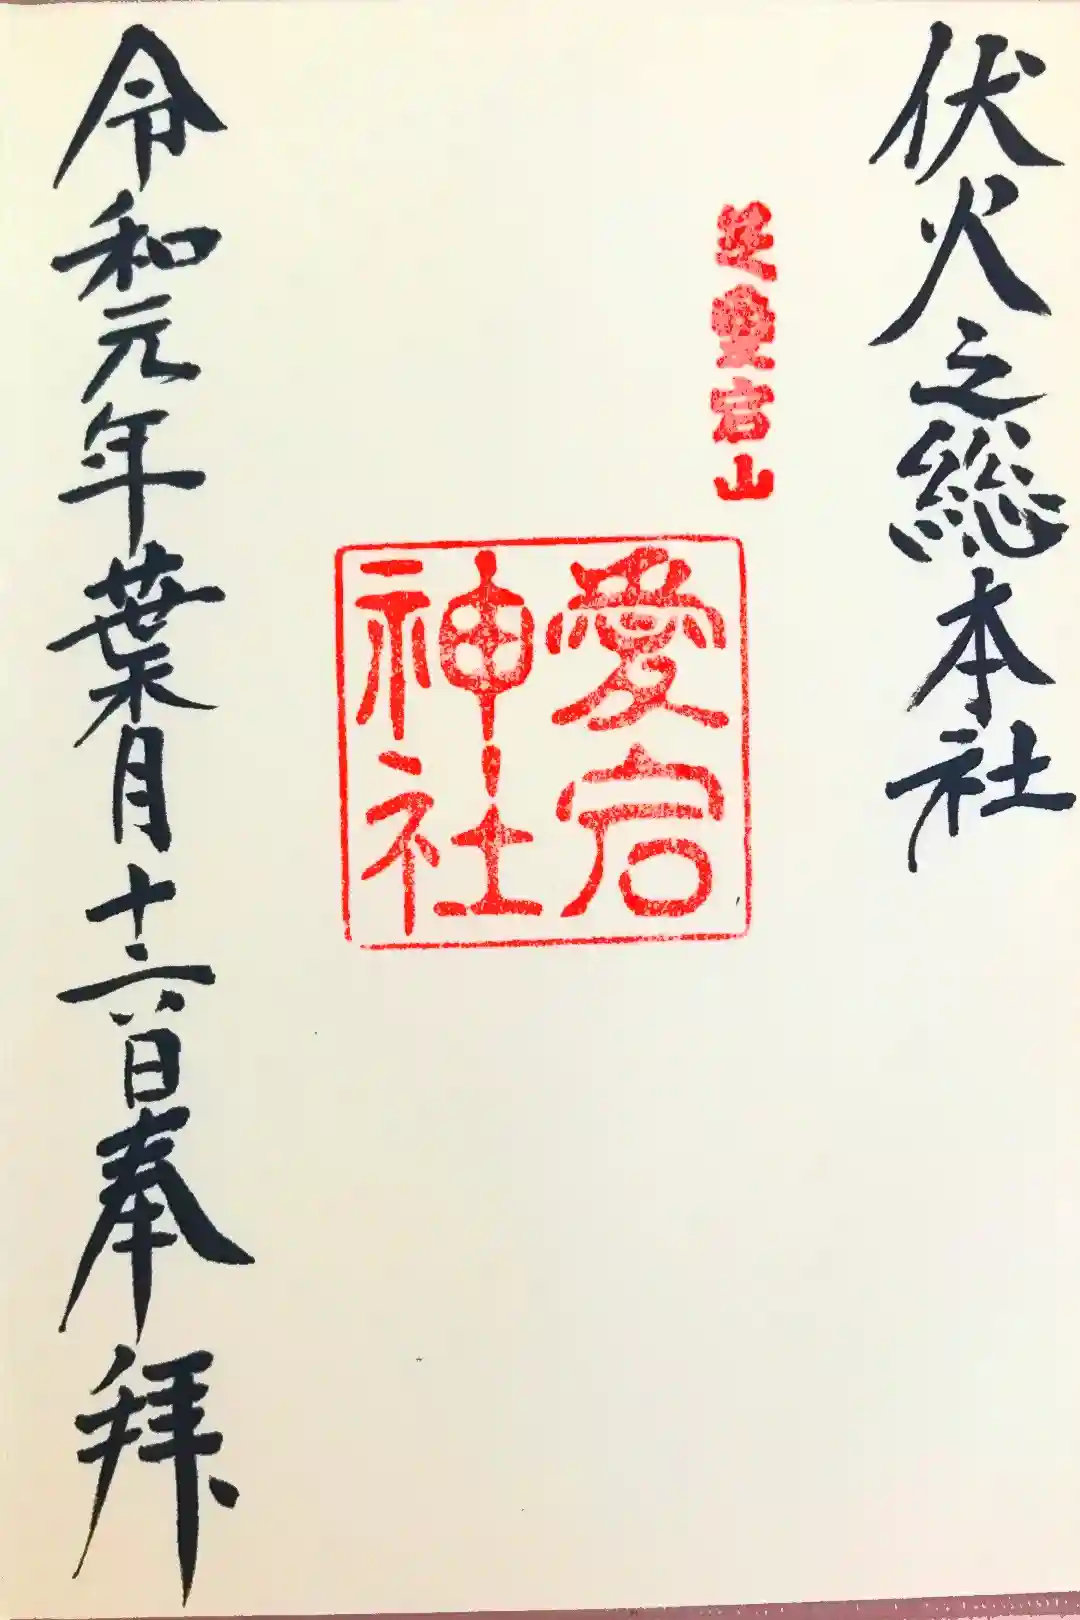 伏火之総本社
芝愛宕山
愛宕
神社
令和元年葉月十六日奉拜